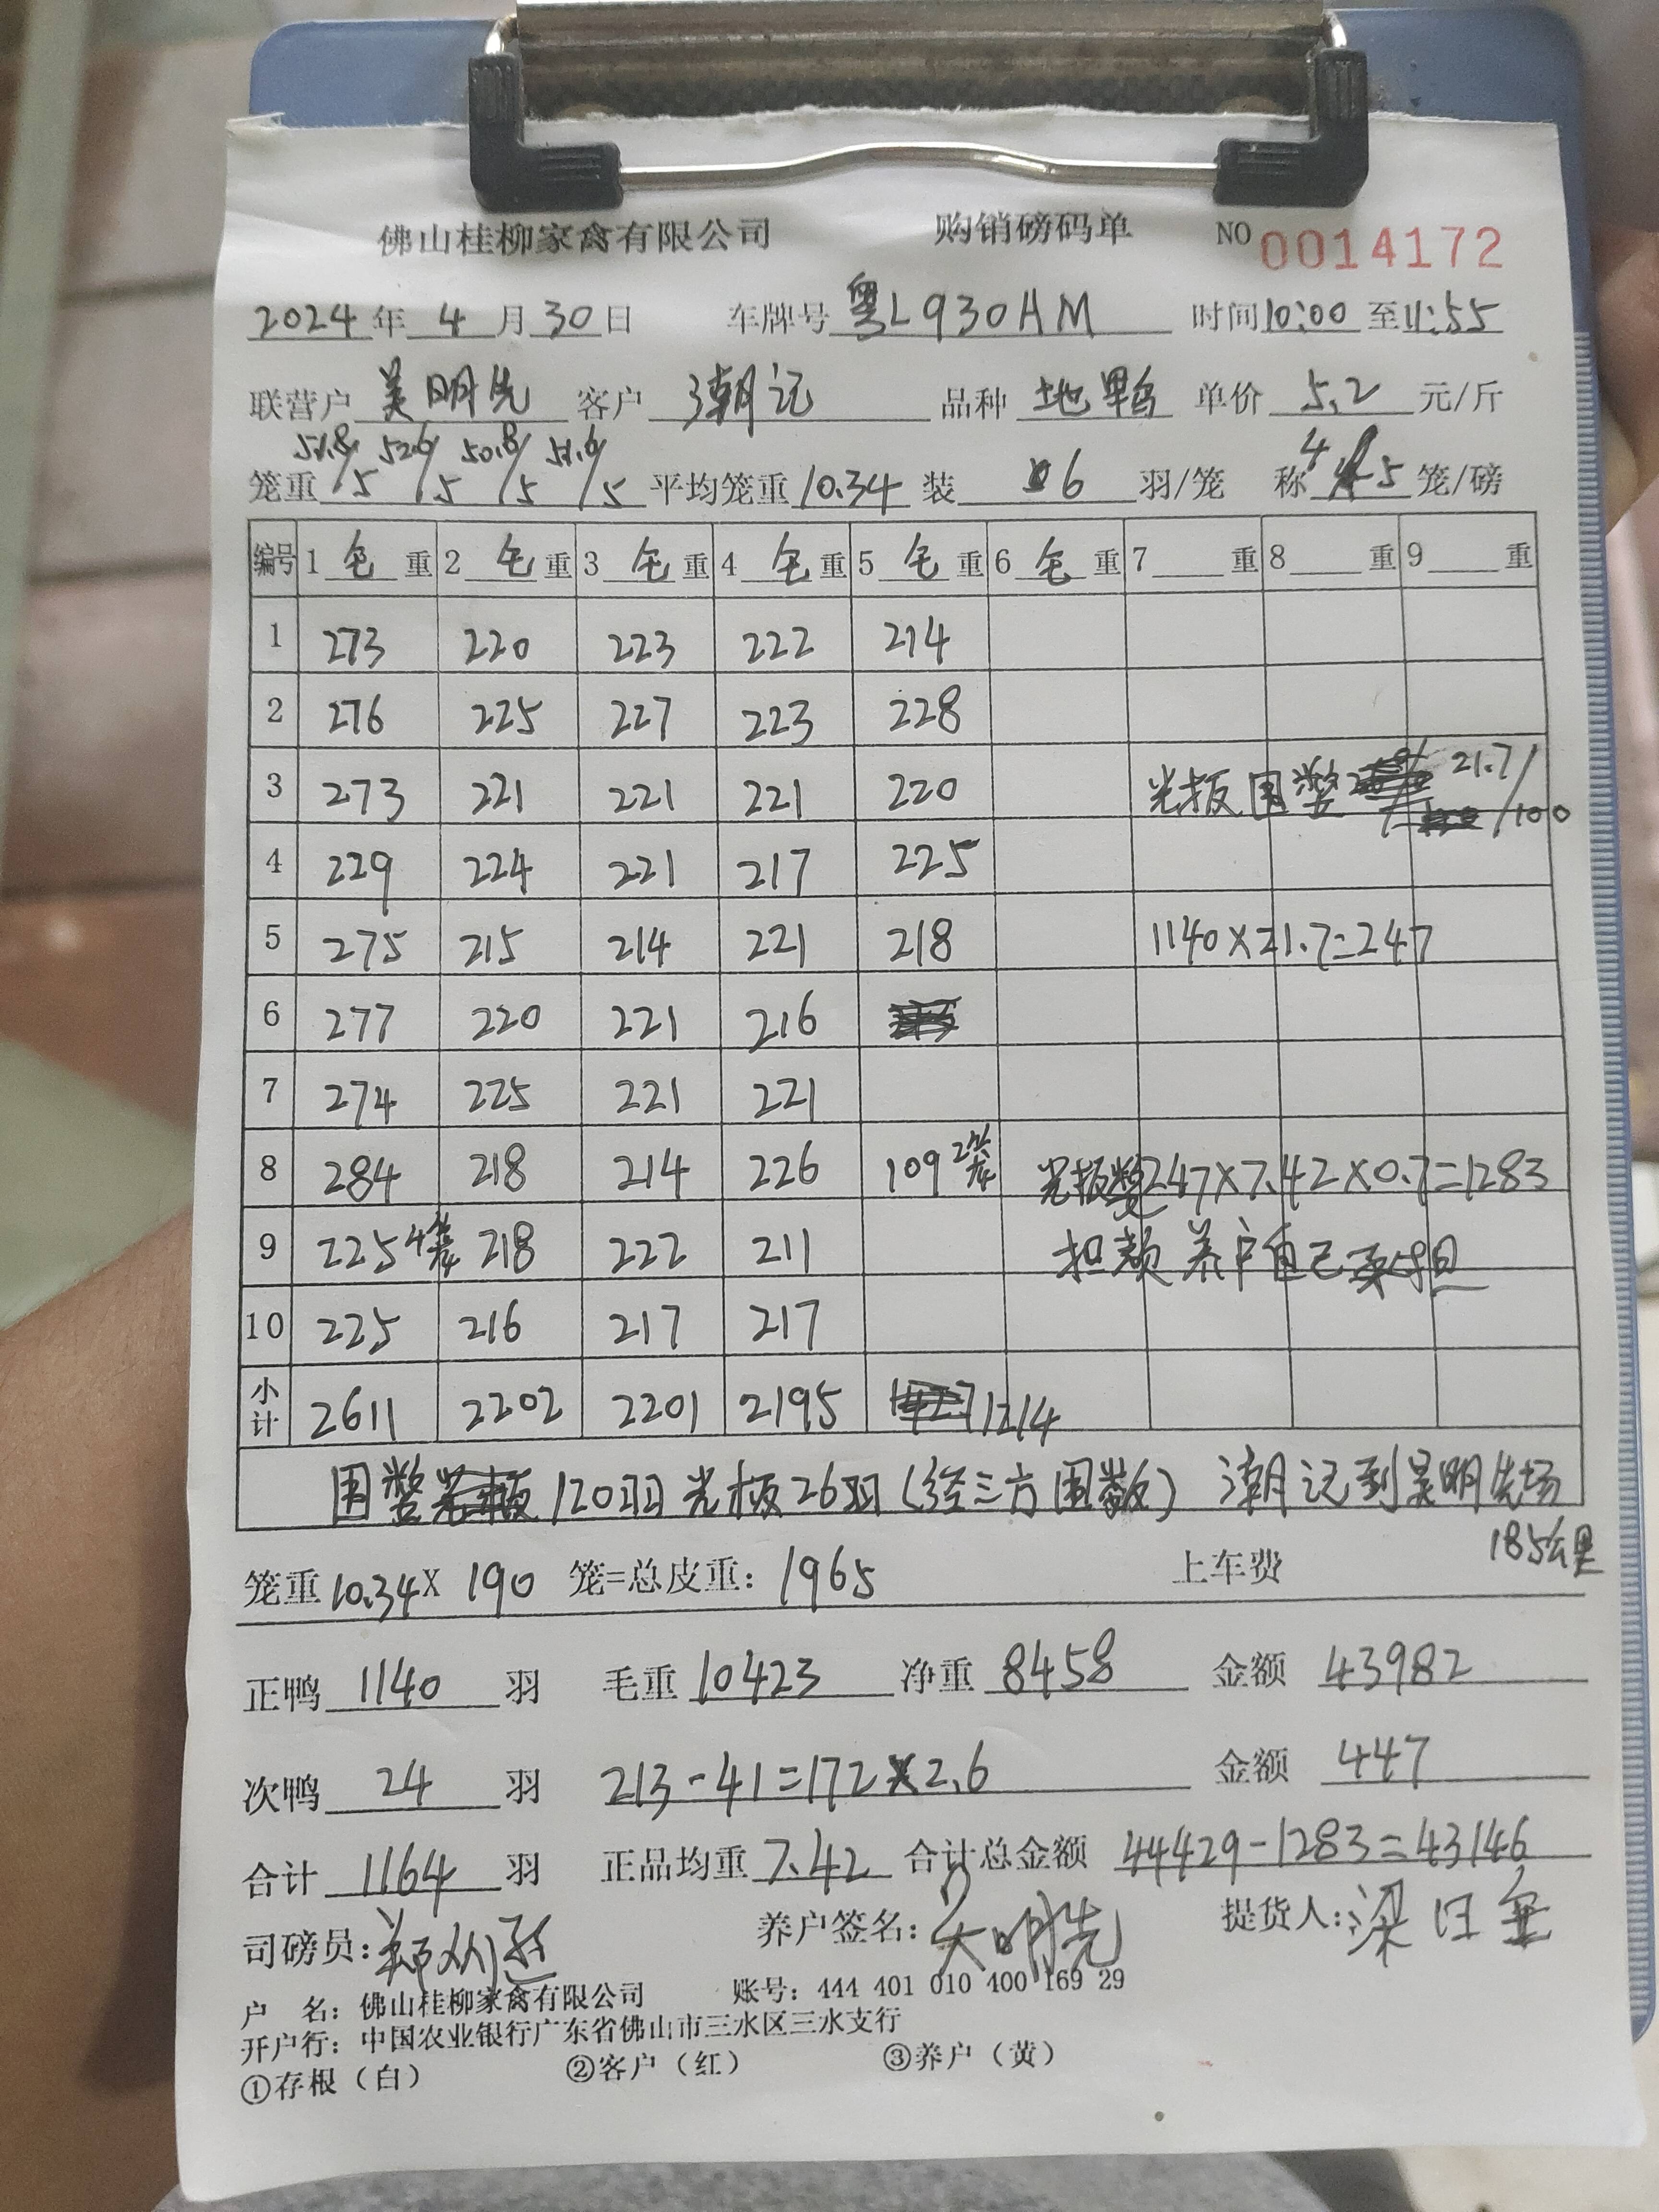 佛山桂柳家禽有限公司 购销磅码单 NO 0014172
2024年4月30日 车牌号 粤L930AM 时间10:00至11:55
联营户 吴明先 客户 潮记 品种 地鸭 单价 5.2 元/斤
笼重 51.8/5 52.6/5 50.8/5 51.6/5 平均笼重 10.34 装 6 羽/笼 称 4 5 笼/磅
编号 1 毛 重 2 毛 重 3 毛 重 4 毛 重 5 毛 重 6 毛 重 7 重 8 重 9 重
1 273 220 223 222 214
2 276 225 227 223 228
3 273 221 221 221 220 光板围数 21.7/100
4 229 224 221 217 225
5 275 215 214 221 218 1140×21.7=247
6 277 220 221 216
7 274 225 221 221
8 284 218 214 226 109 2笼 光板 247×7.42×0.7=1283
9 225 4笼 218 222 211 扣款养户自己承担
10 225 216 217 217
小计 2611 2202 2201 2195 1214
围数 120羽光板26羽(经三方围数) 潮记到吴明先场
185公里
笼重 10.34 X 190 笼=总皮重: 1965 上车费
正鸭 1140 羽 毛重 10423 净重 8458 金额 43982
次鸭 24 羽 213-41=172×2.6 金额 447
合计 1164 羽 正品均重 7.42 合计总金额 44429-1283=43146
司磅员: 养户签名: 吴明先 提货人:
户 名: 佛山桂柳家禽有限公司 账号: 444 401 010 400 169 29
开户行: 中国农业银行广东省佛山市三水区三水支行
①存根(白) ②客户(红) ③养户(黄)